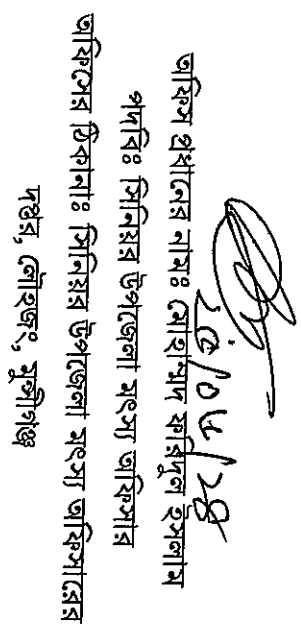 অফিস প্রধানের নামঃ মোহাম্মদ ফরিদুল ইসলাম
পদবিঃ সিনিয়র উপজেলা মৎস্য অফিসার
অফিসের ঠিকানাঃ সিনিয়র উপজেলা মৎস্য অফিসারের
দপ্তর, লৌহজং, মুন্সীগঞ্জ